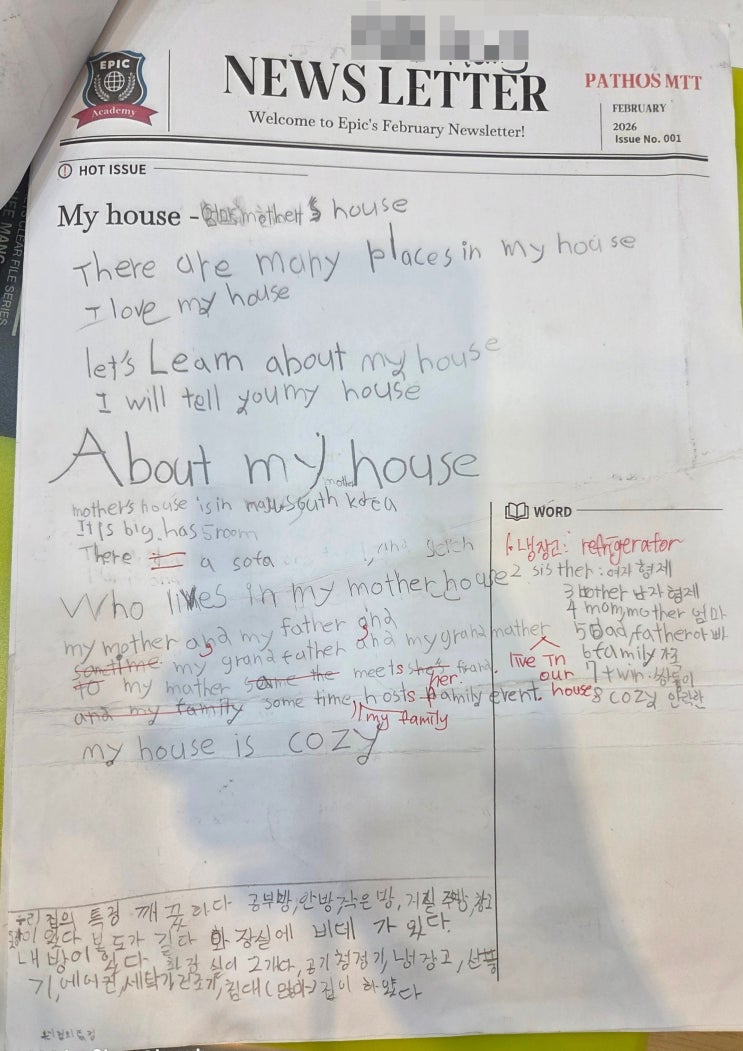 EPIC
Academy
NEWS LETTER
Welcome to Epic's February Newsletter!
PATHOS MTT
FEBRUARY
2026
Issue No. 001
HOT ISSUE
My house - mother's house
There are many places in my house
I love my house
let's Learn about my house
I will tell you my house
About my house
mother
mother's house is in South korea
It is big. has 5 room
There a sofa
Who lives in my mother house
my mother and my father and
my grand father and my grand mather live in our house
sometime
to my mather meets frand. her.
and my family some time, hosts family event.
my family
my house is cozy
WORD
1. 냉장고: refrigerator
2 sisther: 여자 형제
3 bother 남자 형제
4 mom, mother 엄마
5 Dad, father 아빠
6 family 가족
7 twin. 쌍둥이
8 cozy 안락한
우리 집의 특징 깨끗하다 공부방, 안방, 작은 방, 거실, 주방, 창고
있다 복도가 길다 화장실에 비데 가 있다.
내 방이 있다 화장실이 2개다, 공기청정기, 냉장고, 선풍
기, 에어컨, 세탁기, 건조기, 침대 (엄마) 집이 하얗다
우리집의 특징